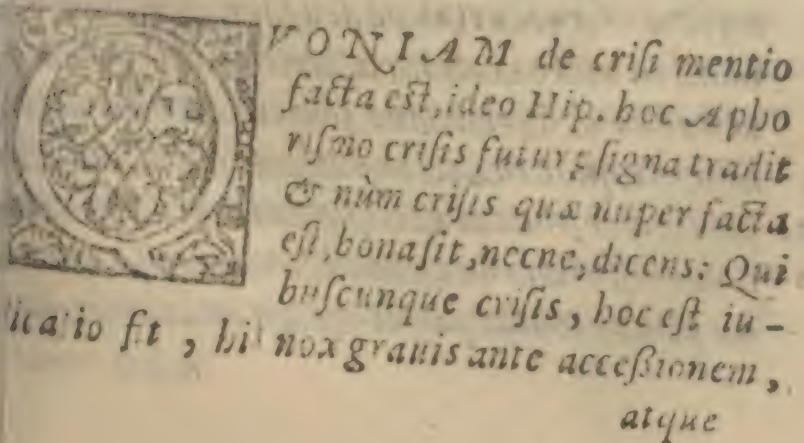 QVONIAM de crisi mentio
facta est, ideo Hip. hoc Apho
rismo crisis futurę signa tradit
& nùm crisis quæ nuper facta
est, bona sit, necne, dicens: Qui
buscunque crisis, hoc est iu-
dicatio fit, his nox grauis ante accessionem,
atque